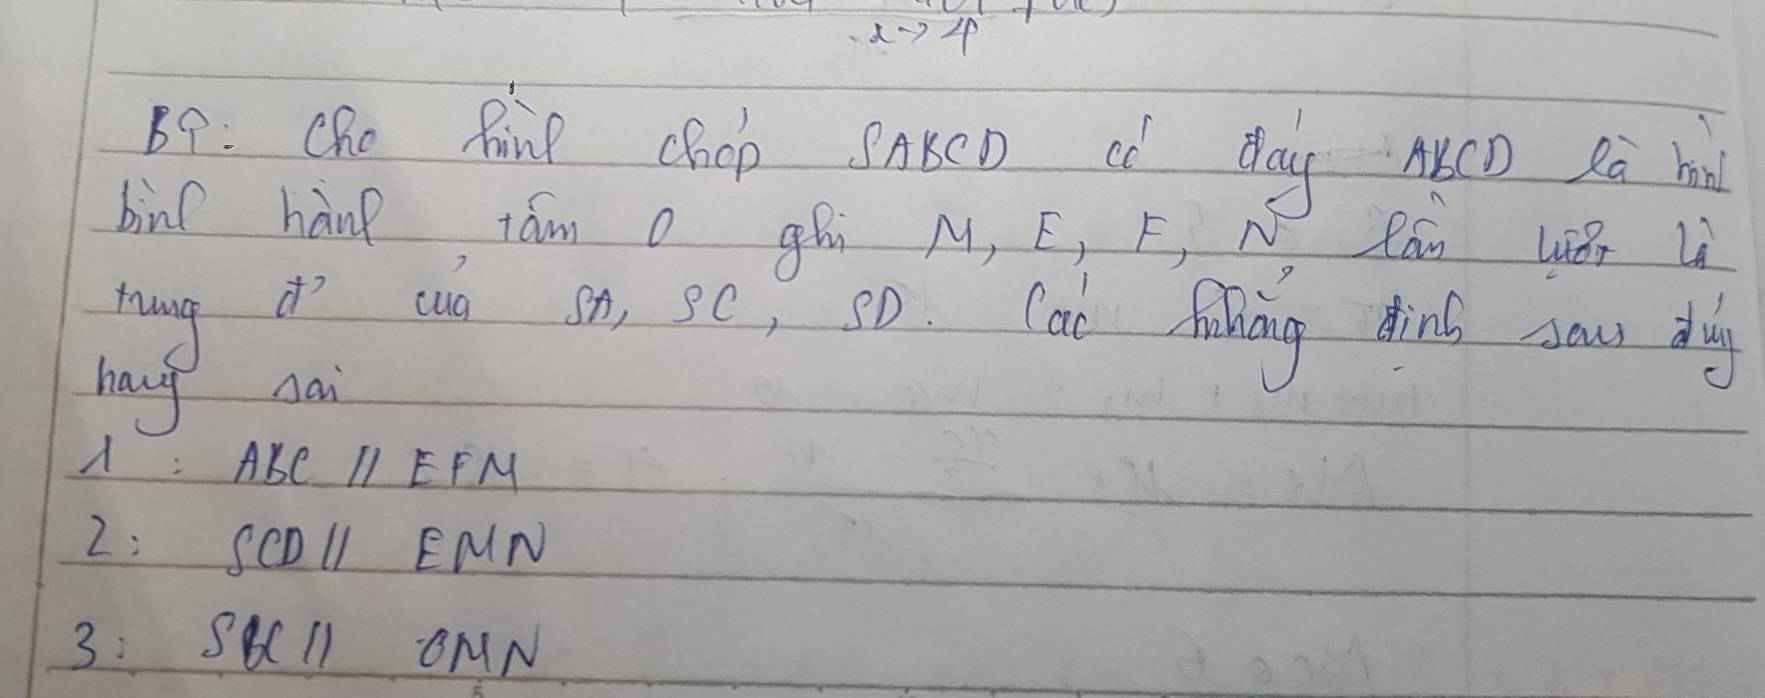 x→4
B9: Cho hình chóp SABCD có đáy ABCD là hình
bình hành tâm O ghi M, E, F, N lần lượt là
trung đ' của SA, SC, SD. Các khẳng định sau đúng
hay sai
1: ABC // EFM
2: SCD // EMN
3: SBC // OMN